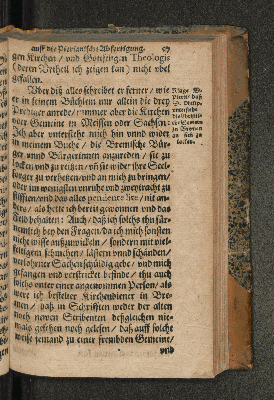 auff die Pierianische Abfertigung. 57
gen Kirchen / vnd Götting. n Theologis
( deren Vrtheil ich zeigen kan ) nicht vbel
gefallen.
Vber diß alles schreibet er ferner / wie
er in seinem Büchlein nur allein die drey
Prediger anrede / nimmer aber die Kirchen
oder Gemeine in Meissen oder Sachsen:
Ich aber vnterstehe mich hin vnnd wider
in meinem Buche / die Bremische Bür-
ger vnnd Bürgerinnen anzureden / sie zu
locken vnd zu reitzen / vñ sie wider ihre Seel-
sorger zu verhetzen / vnd an mich zu bringen /
oder im wenigsten vnruhe vnd zweytracht zu
stifften / vnd das alles
als / als hette ich bereit gewonnen vnd das
Feld behalten: Auch / daß ich solchs thu für-
nemlich bey den Fragen / da ich mich sonsten
nicht wisse außzuwickeln / sondern mit viel-
feltigem schmehen / lästern vnnd schänden /
verlohrner Sachen schuldig gebe / vnd mich
gefangen vnd verstrickt befinde / thu auch
solchs vnter einer angenommen Person / als
were ich bestelter Kirchendiener in Bre-
men / daß in Schrifften weder der alten
noch newen Scribenten deßgleichen nie-
mals gesehen noch gelesen / daß auff solche
weise jemand zu einer frembden Gemeine /
vnd
Klage
daß
D.
die
Gemein
in Bremen
an sich zu
locken.